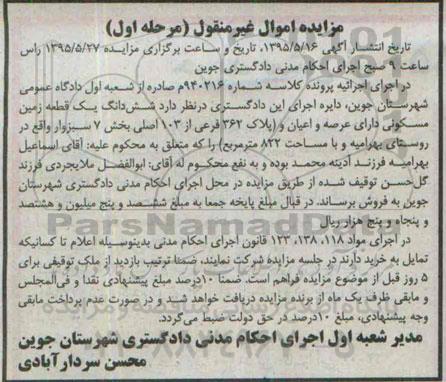 مزایده اموال غیرمنقول (مرحله اول)
تاریخ انتشار آگهی ۱۳۹۵/۵/۱۶، تاریخ و ساعت برگزاری مزایده ۱۳۹۵/۵/۲۷ راس
ساعت ۹ صبح اجرای احکام مدنی دادگستری جوین
در اجرای اجرائیه پرونده کلاسه شماره ۹۴۰۲۱۶م صادره از شعبه اول دادگاه عمومی
شهرستان جوین، دایره اجرای این دادگستری درنظر دارد شش‌دانگ یک قطعه زمین
مسکونی دارای عرصه و اعیان و (پلاک ۳۶۲ فرعی از ۱۰۳ اصلی بخش ۷ سبزوار واقع در
روستای بهرامیه و با مساحت ۸۲۲ مترمربع) را که متعلق به محکوم علیه: آقای اسماعیل
بهرامیه فرزند آدینه محمد بوده و به نفع محکوم‌له آقای: ابوالفضل ملایجردی فرزند
گل‌حسن توقیف شده از طریق مزایده در محل اجرای احکام مدنی دادگستری شهرستان
جوین به فروش برساند. در قبال مبلغ پایخه جمعا به مبلغ ششصد و پنج میلیون و هشتصد
و پنجاه و پنج هزار ریال
در اجرای مواد ۱۱۸، ۱۳۸، ۱۲۳ قانون اجرای احکام مدنی بدینوسیله اعلام تا کسانیکه
تمایل به خرید دارند در جلسه مزایده شرکت نمایند، ضمنا ترتیب بازدید از ملک توقیفی برای
۵ روز قبل از موضوع مزایده فراهم است. ضمنا ۱۰درصد مبلغ پیشنهادی نقدا و فی‌المجلس
و مابقی ظرف یک ماه از برنده مزایده دریافت خواهد شد و در صورت عدم پرداخت مابقی
وجه پیشنهادی، مبلغ ۱۰درصد در حق دولت ضبط می‌گردد.
مدیر شعبه اول اجرای احکام مدنی دادگستری شهرستان جوین
محسن سردارآبادی
ParsNamadData